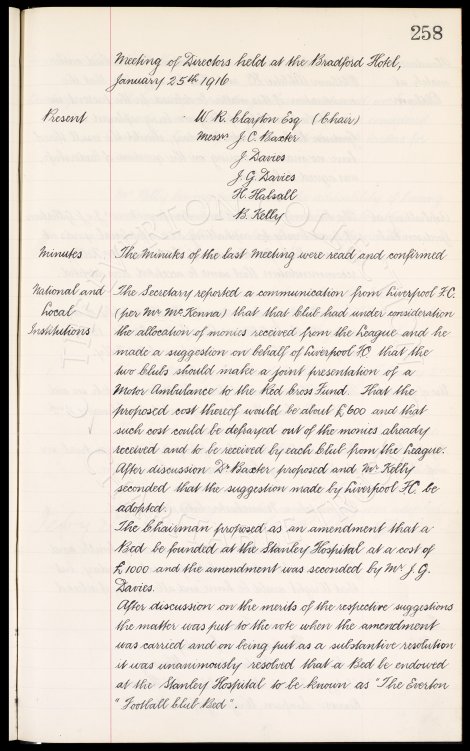 258
Meeting of Directors held at the Bradford Hotel,
January 25th 1916
Present W. R. Clayton Esq (Chair)
Messrs J. C. Baxter
J. Davies
J. G. Davies
H. Halsall
B. Kelly
Minutes The Minutes of the last Meeting were read and confirmed
National and The Secretary reported a communication from Liverpool F.C.
Local (per Mr McKenna) that that club had under consideration
Institutions the allocation of monies received from the League and he
made a suggestion on behalf of Liverpool FC that the
two clubs should make a joint presentation of a
Motor Ambulance to the Red Cross Fund. That the
proposed cost thereof would be about £600 and that
such cost could be defrayed out of the monies already
received and to be received by each club from the League.
After discussion Dr Baxter proposed and Mr Kelly
seconded that the suggestion made by Liverpool FC be
adopted.
The Chairman proposed as an amendment that a
Bed be founded at the Stanley Hospital at a cost of
£1000 and the amendment was seconded by Mr J. G.
Davies.
After discussion on the merits of the respective suggestions
the matter was put to the vote when the amendment
was carried and on being put as a substantive resolution
it was unanimously resolved that a Bed be endowed
at the Stanley Hospital to be known as "The Everton
"Football Club Bed".